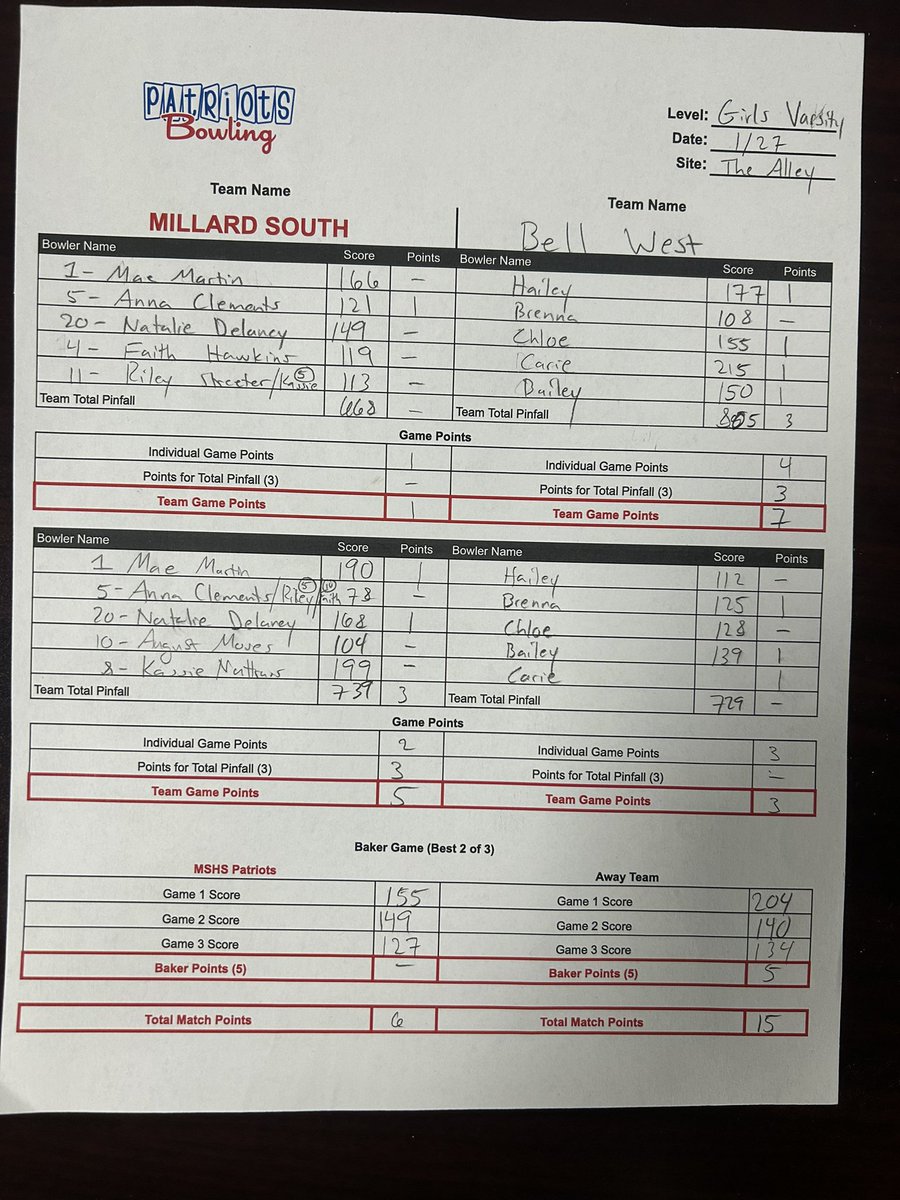 PATRIOTS
Bowling
Level: Girls Varsity
Date: 1/27
Site: The Alley
Team Name Team Name
MILLARD SOUTH Bell West
Bowler Name Score Points Bowler Name Score Points
1- Mae Martin 166 – Hailey 177 1
5- Anna Clements 121 1 Brenna 108 –
20- Natalie Delaney 149 – Chloe 155 1
4- Faith Hawkins 119 – Carie 215 1
11- Riley Streeter/Kassie (5) 113 – Bailey 150 1
Team Total Pinfall 668 – Team Total Pinfall 805 3
Game Points
Individual Game Points 1 Individual Game Points 4
Points for Total Pinfall (3) – Points for Total Pinfall (3) 3
Team Game Points 1 Team Game Points 7
Bowler Name Score Points Bowler Name Score Points
1 Mae Martin 190 1 Hailey 112 –
5- Anna Clements/Riley (5)/Faith (10) 78 – Brenna 125 1
20- Natalie Delaney 168 1 Chloe 128 –
10- August Moves 104 – Bailey 139 1
8- Kassie 199 – Carie 1
Team Total Pinfall 739 3 Team Total Pinfall 729 –
Game Points
Individual Game Points 2 Individual Game Points 3
Points for Total Pinfall (3) 3 Points for Total Pinfall (3) –
Team Game Points 5 Team Game Points 3
Baker Game (Best 2 of 3)
MSHS Patriots Away Team
Game 1 Score 155 Game 1 Score 204
Game 2 Score 149 Game 2 Score 140
Game 3 Score 127 Game 3 Score 134
Baker Points (5) – Baker Points (5) 5
Total Match Points 6 Total Match Points 15